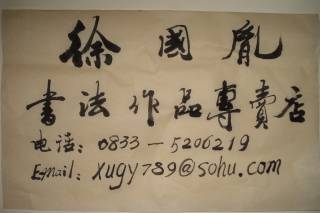 徐國胤
書法作品專賣店
电话：0833－5206219
E-mail：xugy789@sohu.com